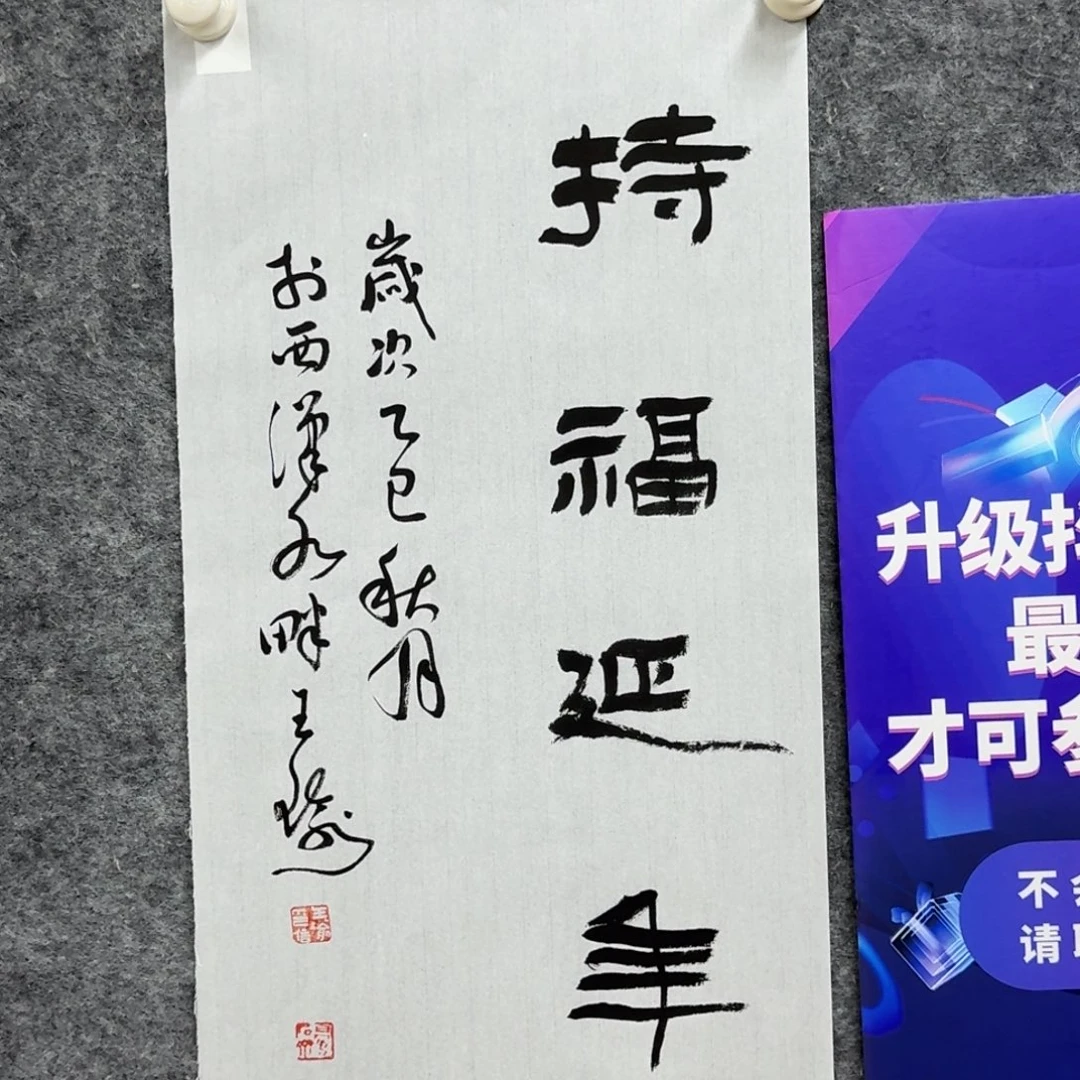 持福延年
歲次乙巳秋月
於西漢水畔王瑜
升级
最
才可参
不
请